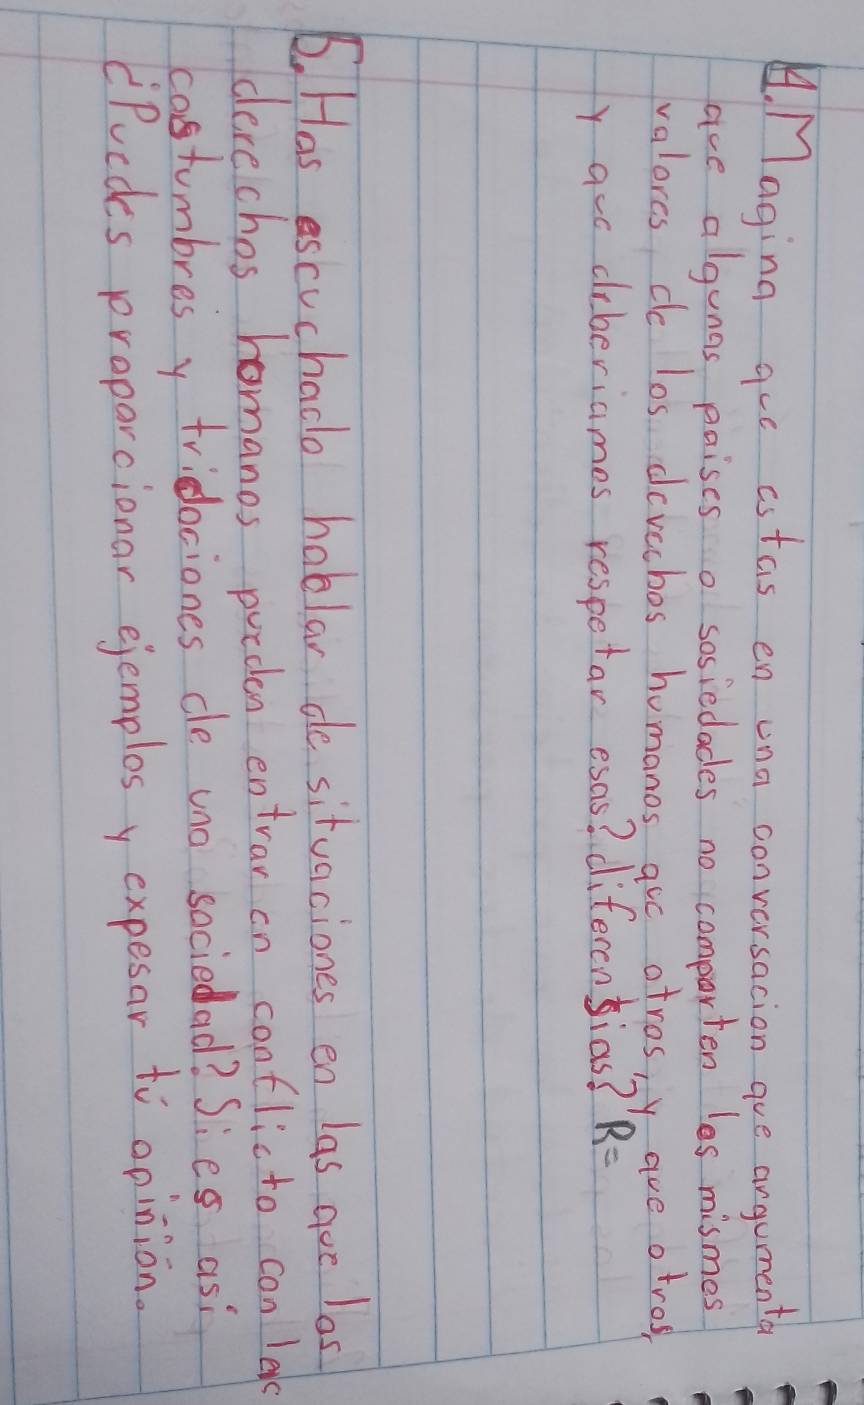 4. Magina que estas en una conversacion que argumenta
que algunas paises o sosiedades no comparten los mismos
valores de los derechos humanos que otros, y que otros,
y que deberiamos respetar esas? diferensias? R=
5. Has escuchado hablar de situaciones en las que los
derechos homanos pueden entrar en conflicto con las
costumbres y tridociones de una sociedad? Si es asi
¿Puedes proporcionar ejemplos y expesar tú opinión.